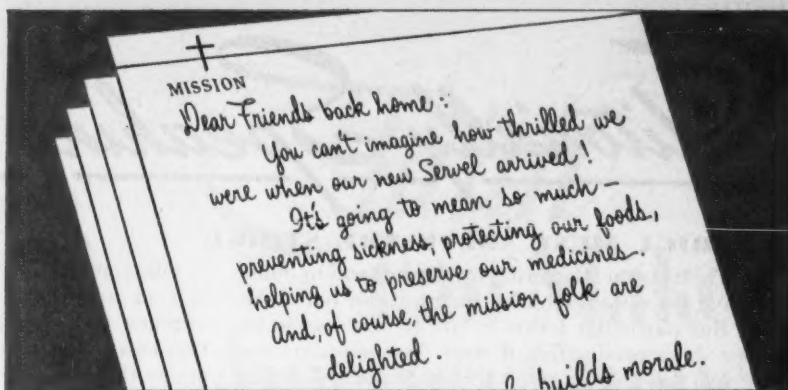 MISSION
Dear Friends back home:
You can't imagine how thrilled we
were when our new Servel arrived!
It's going to mean so much—
preventing sickness, protecting our foods,
helping us to preserve our medicines.
And, of course, the mission folk are
delighted.
builds morale.